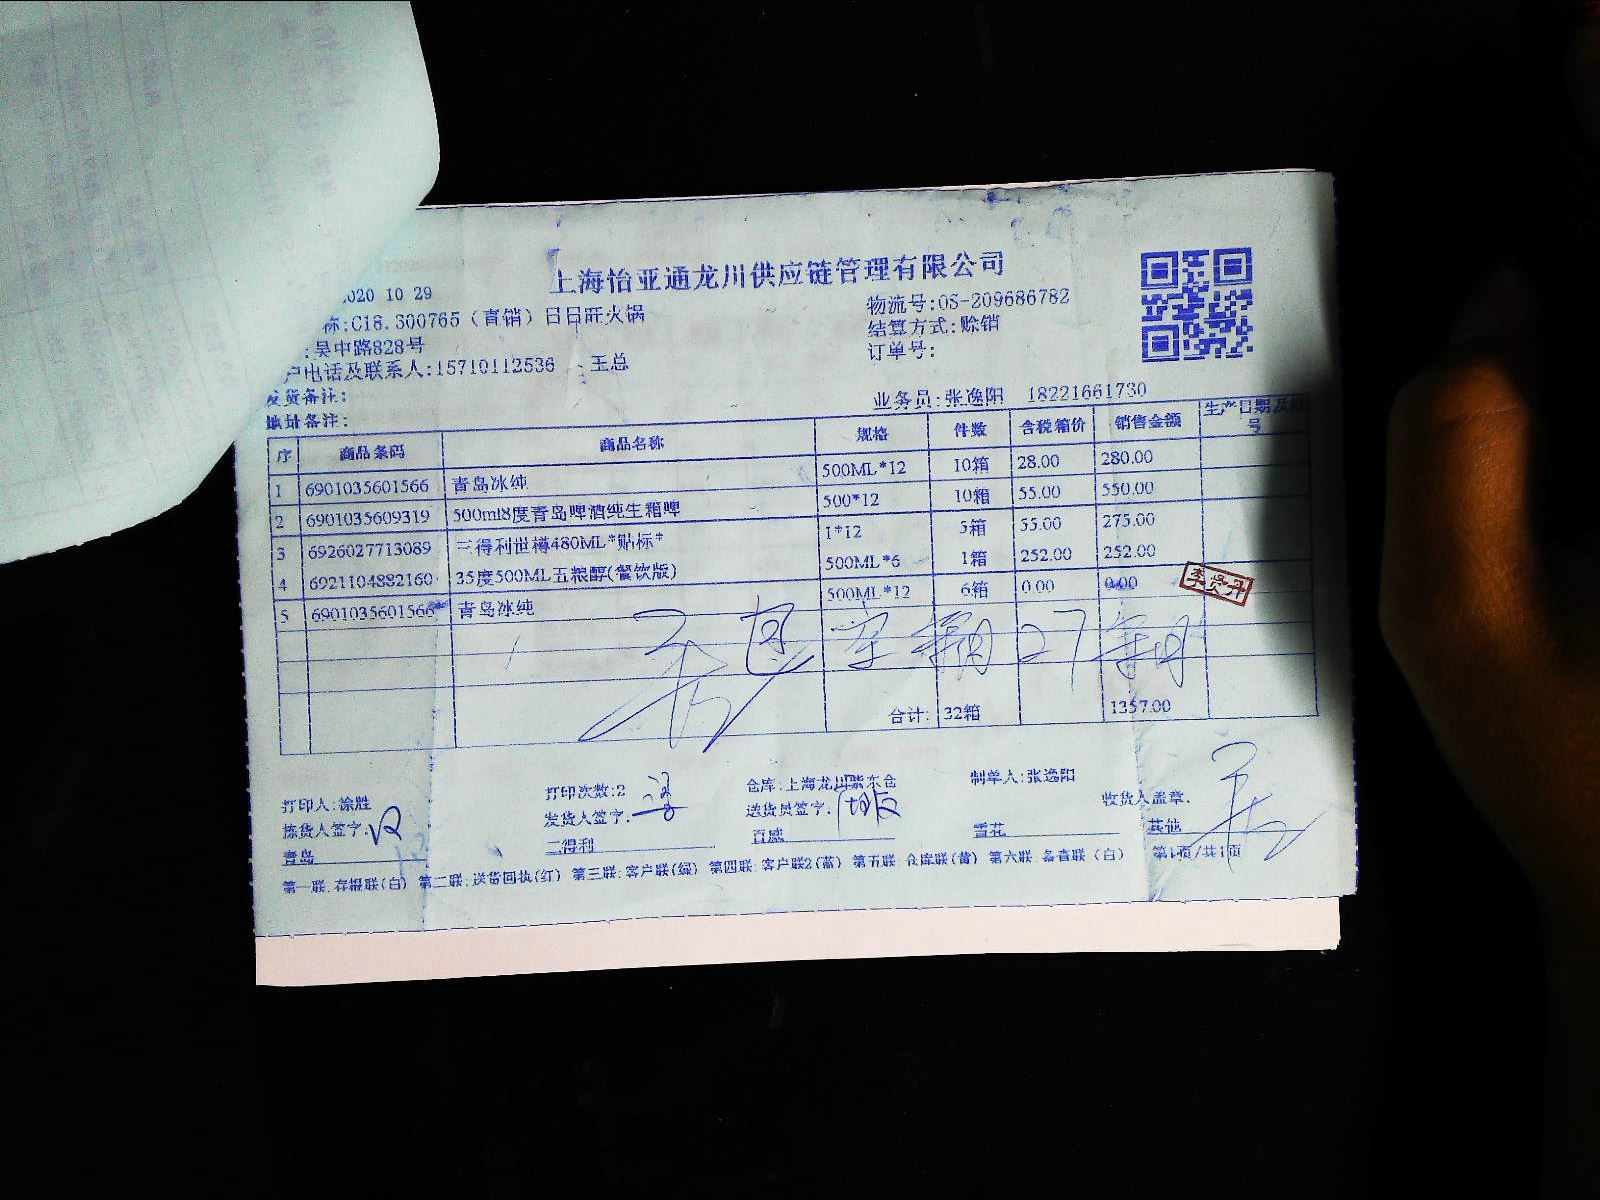 上海怡亚通龙川供应链管理有限公司
2020 10 29
称:C18.300765（直销）日日旺火锅
物流号:OS-209686782
:吴中路828号
结算方式:赊销
户电话及联系人:15710112536 、王总
订单号:
发货备注:
业务员:张逸阳 18221661730
地址备注:
序 商品条码 商品名称 规格 件数 含税箱价 销售金额 生产日期及批号
1 6901035601566 青岛冰纯 500ML*12 10箱 28.00 280.00
2 6901035609319 500ml8度青岛啤酒纯生箱啤 500*12 10箱 55.00 550.00
3 6926027713089 三得利世樽480ML*贴标* 1*12 5箱 55.00 275.00
4 6921104882160 35度500ML五粮醇(餐饮版) 500ML*6 1箱 252.00 252.00
5 6901035601566 青岛冰纯 500ML*12 6箱 0.00 0.00
合计: 32箱 1357.00
打印人:徐胜 打印次数:2 仓库:上海龙川紫东仓 制单人:张逸阳
拣货人签字: 发货人签字: 送货员签字: 收货人盖章:
青岛 三得利 百威 雪花 其他
第一联:存根联(白) 第二联:送货回执(红) 第三联:客户联(绿) 第四联:客户联2(蓝) 第五联:仓库联(黄) 第六联:备查联(白) 第1页/共1页